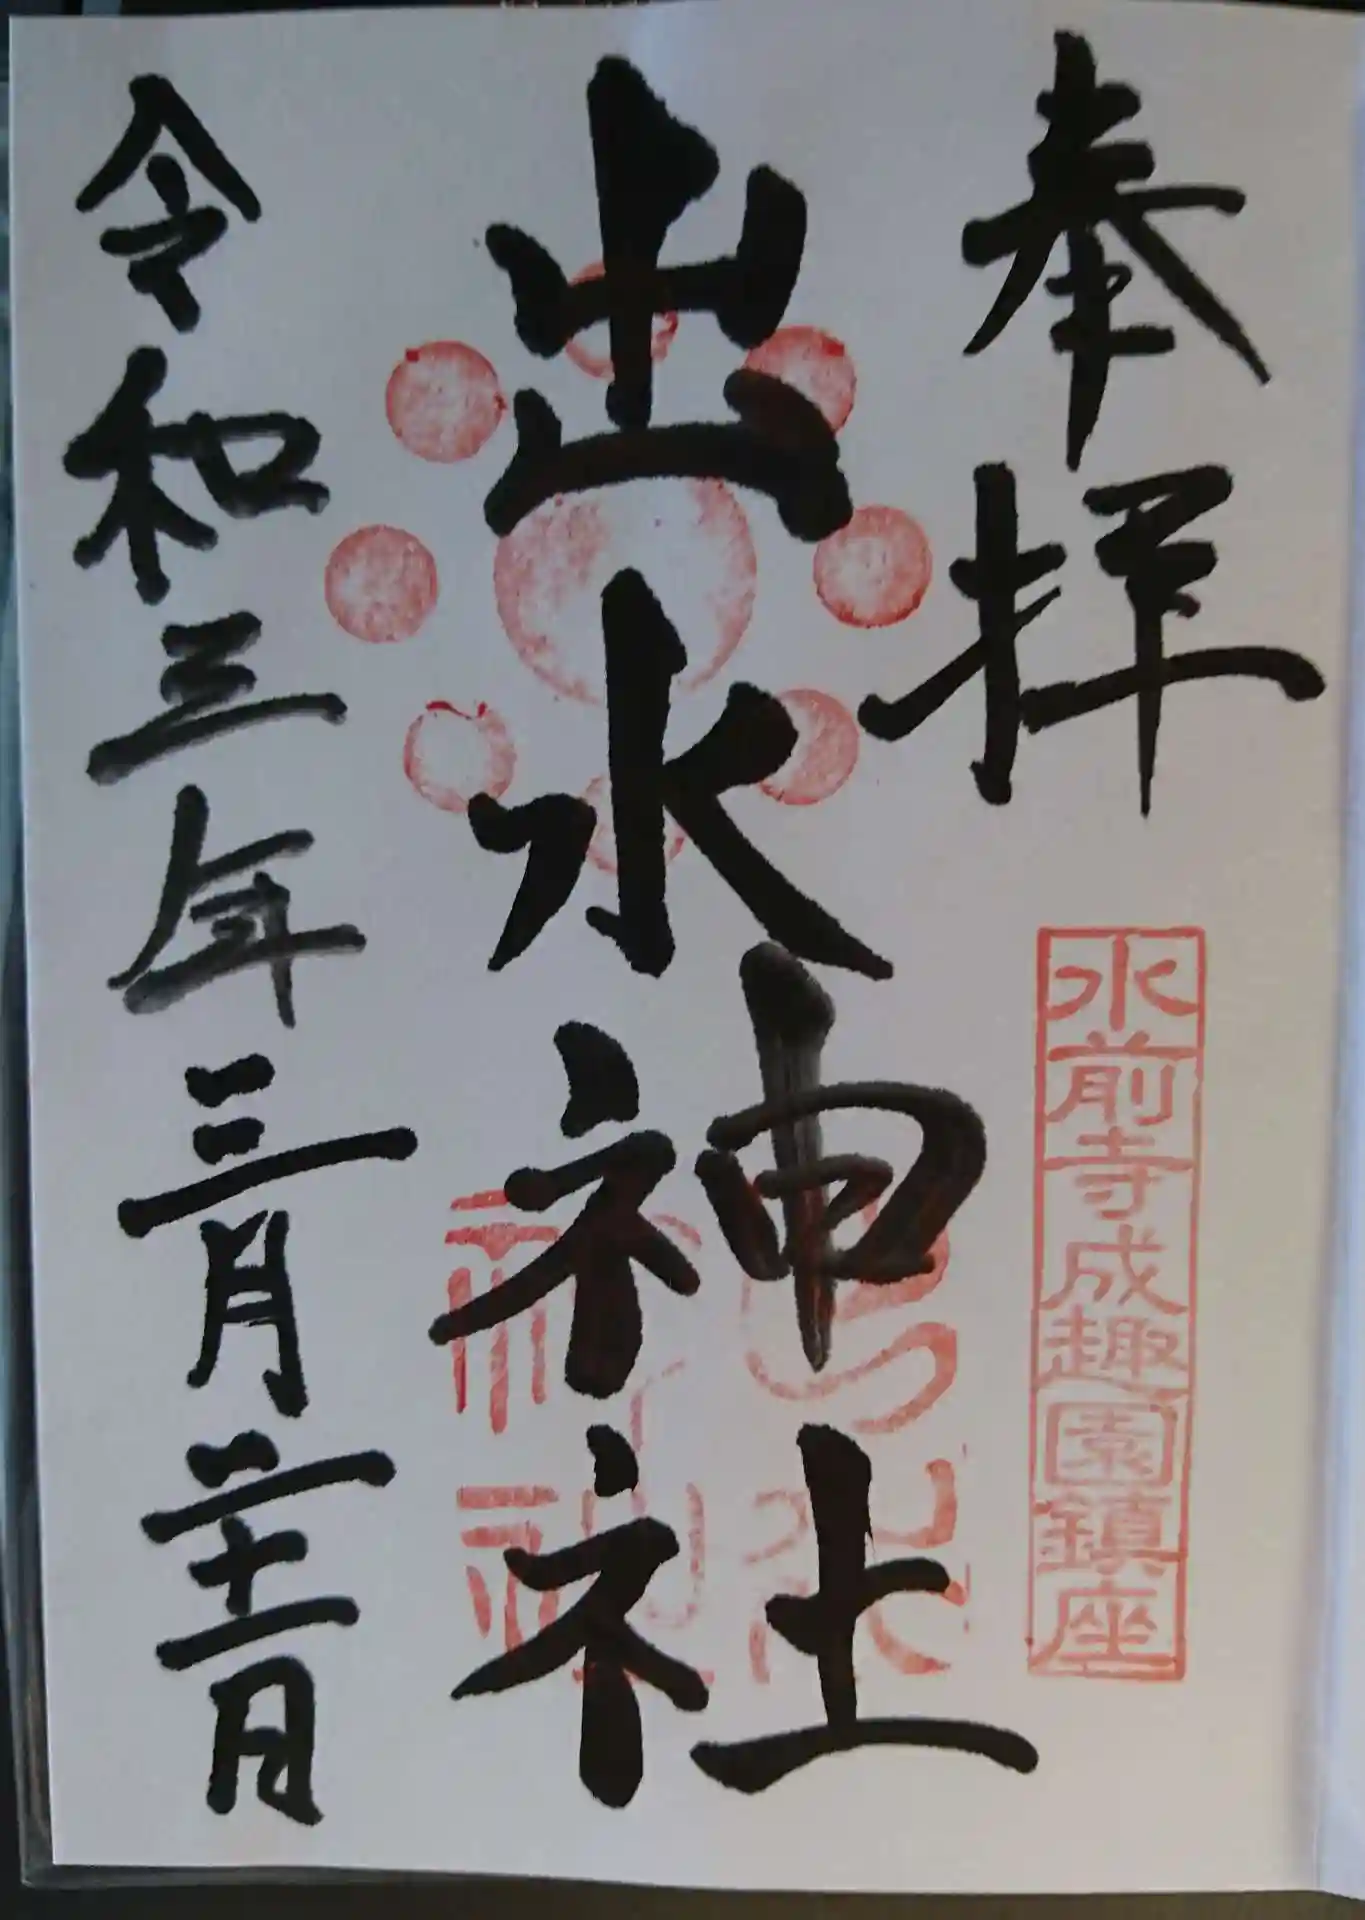 奉拝
水前寺成趣園鎮座
出水神社
令和三年三月二十一日